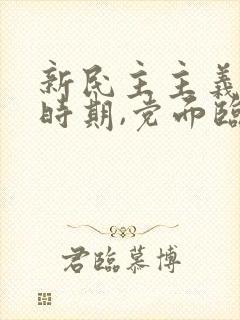 新民主主義
時期,党而臨
君臨慕博